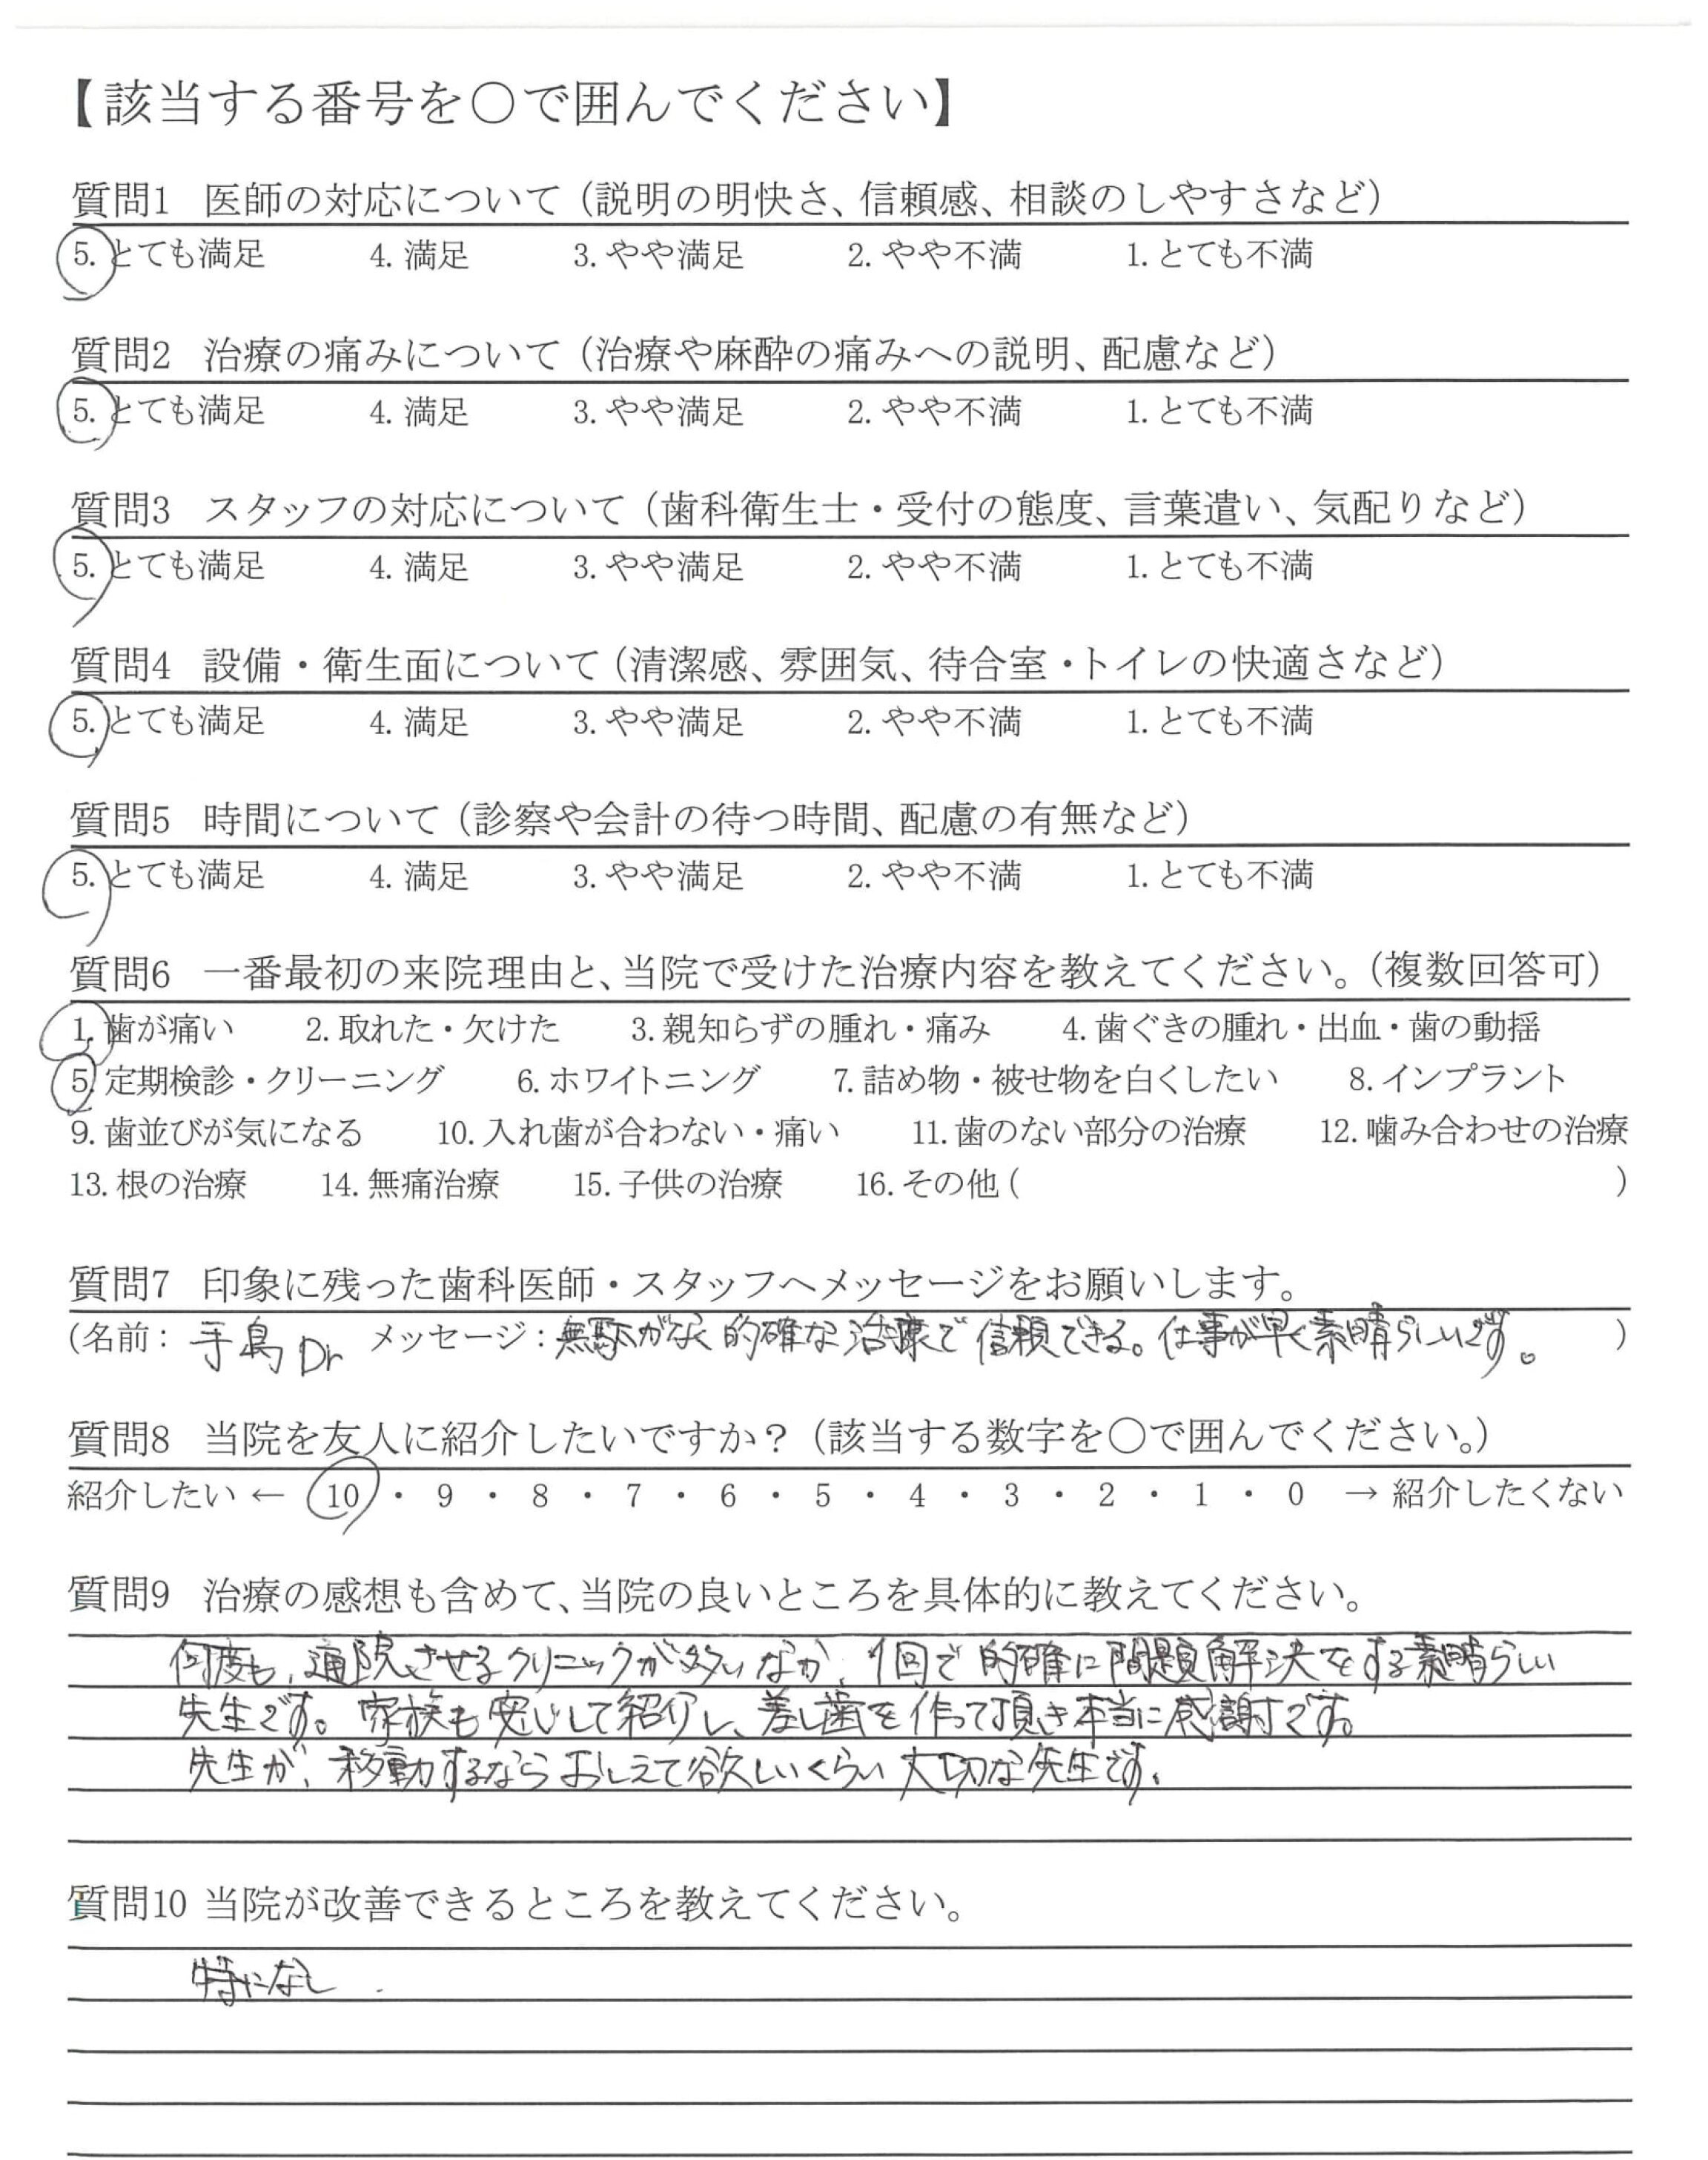 【該当する番号を〇で囲んでください】
質問1 医師の対応について（説明の明快さ、信頼感、相談のしやすさなど）
5. とても満足 4. 満足 3. やや満足 2. やや不満 1. とても不満
質問2 治療の痛みについて（治療や麻酔の痛みへの説明、配慮など）
5. とても満足 4. 満足 3. やや満足 2. やや不満 1. とても不満
質問3 スタッフの対応について（歯科衛生士・受付の態度、言葉遣い、気配りなど）
5. とても満足 4. 満足 3. やや満足 2. やや不満 1. とても不満
質問4 設備・衛生面について（清潔感、雰囲気、待合室・トイレの快適さなど）
5. とても満足 4. 満足 3. やや満足 2. やや不満 1. とても不満
質問5 時間について（診察や会計の待つ時間、配慮の有無など）
5. とても満足 4. 満足 3. やや満足 2. やや不満 1. とても不満
質問6 一番最初の来院理由と、当院で受けた治療内容を教えてください。（複数回答可）
1. 歯が痛い 2. 取れた・欠けた 3. 親知らずの腫れ・痛み 4. 歯ぐきの腫れ・出血・歯の動揺
5. 定期検診・クリーニング 6. ホワイトニング 7. 詰め物・被せ物を白くしたい 8. インプラント
9. 歯並びが気になる 10. 入れ歯が合わない・痛い 11. 歯のない部分の治療 12. 噛み合わせの治療
13. 根の治療 14. 無痛治療 15. 子供の治療 16. その他（ ）
質問7 印象に残った歯科医師・スタッフへメッセージをお願いします。
（名前：手島Dr メッセージ：無駄がなく的確な治療で信頼できる。仕事が早く素晴らしいです。）
質問8 当院を友人に紹介したいですか？（該当する数字を〇で囲んでください。）
紹介したい ← 10 ・ 9 ・ 8 ・ 7 ・ 6 ・ 5 ・ 4 ・ 3 ・ 2 ・ 1 ・ 0 → 紹介したくない
質問9 治療の感想も含めて、当院の良いところを具体的に教えてください。
何度も、通院させるクリニックが多いなか、1回で的確に問題解決をする素晴らしい
先生です。家族も安心して紹介し、差し歯を作って頂き本当に感謝です。
先生が、移動するならおしえて欲しいくらい大切な先生です。
質問10 当院が改善できるところを教えてください。
特になし.